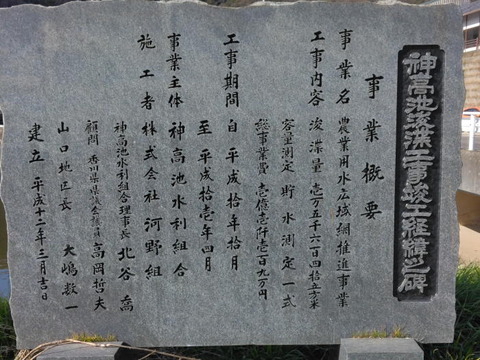 神高池浚渫工事竣工経緯之碑
事業概要
事業名 農業用水広域網推進事業
工事内容 浚渫量 壱万五千六百四拾立方米
容量測定 貯水測定 一式
総事業費 壱億壱仟壱百九万円
工事期間 自 平成拾年拾月
至 平成拾壱年四月
事業主体 神高池水利組合
施工者 株式会社 河野組
神高池水利組合理事長 北谷 喬
顧問 香川県県議会議員 高岡哲夫
山口地区長 大嶋数一
建立 平成十二年三月吉日